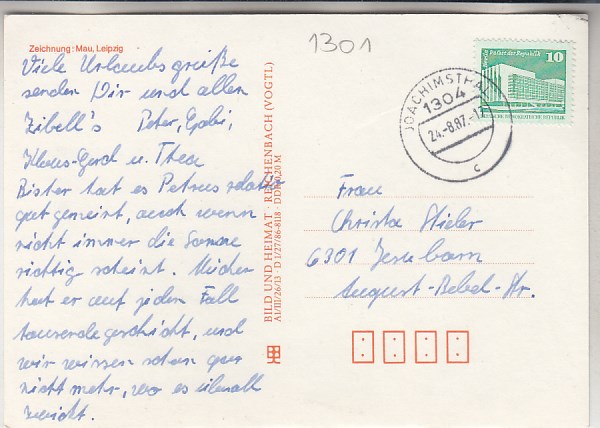 Zeichnung: Mau, Leipzig
Viele Urlaubsgrüße
senden Dir und allen
Zibell's Peter, Gabi,
Klaus-Gerd u. Thea
Bisher hat es Petrus relativ
gut gemeint, auch wenn
nicht immer die Sonne
richtig scheint. Mücken
hat er auf jeden Fall
tausende geschickt, und
wir wissen schon gar
nicht mehr, wo es überall
zwickt.
BILD UND HEIMAT · REICHENBACH (VOGTL)
A1/III/26/13 D 1/27/86-8118 · DDR 0,20 M
1301
Berlin Palast der Republik
10
DEUTSCHE DEMOKRATISCHE REPUBLIK
JOACHIMSTHAL
1304
24.-8.87.-17
c
Frau
Christa Stieler
6301
August-Bebel-Str.